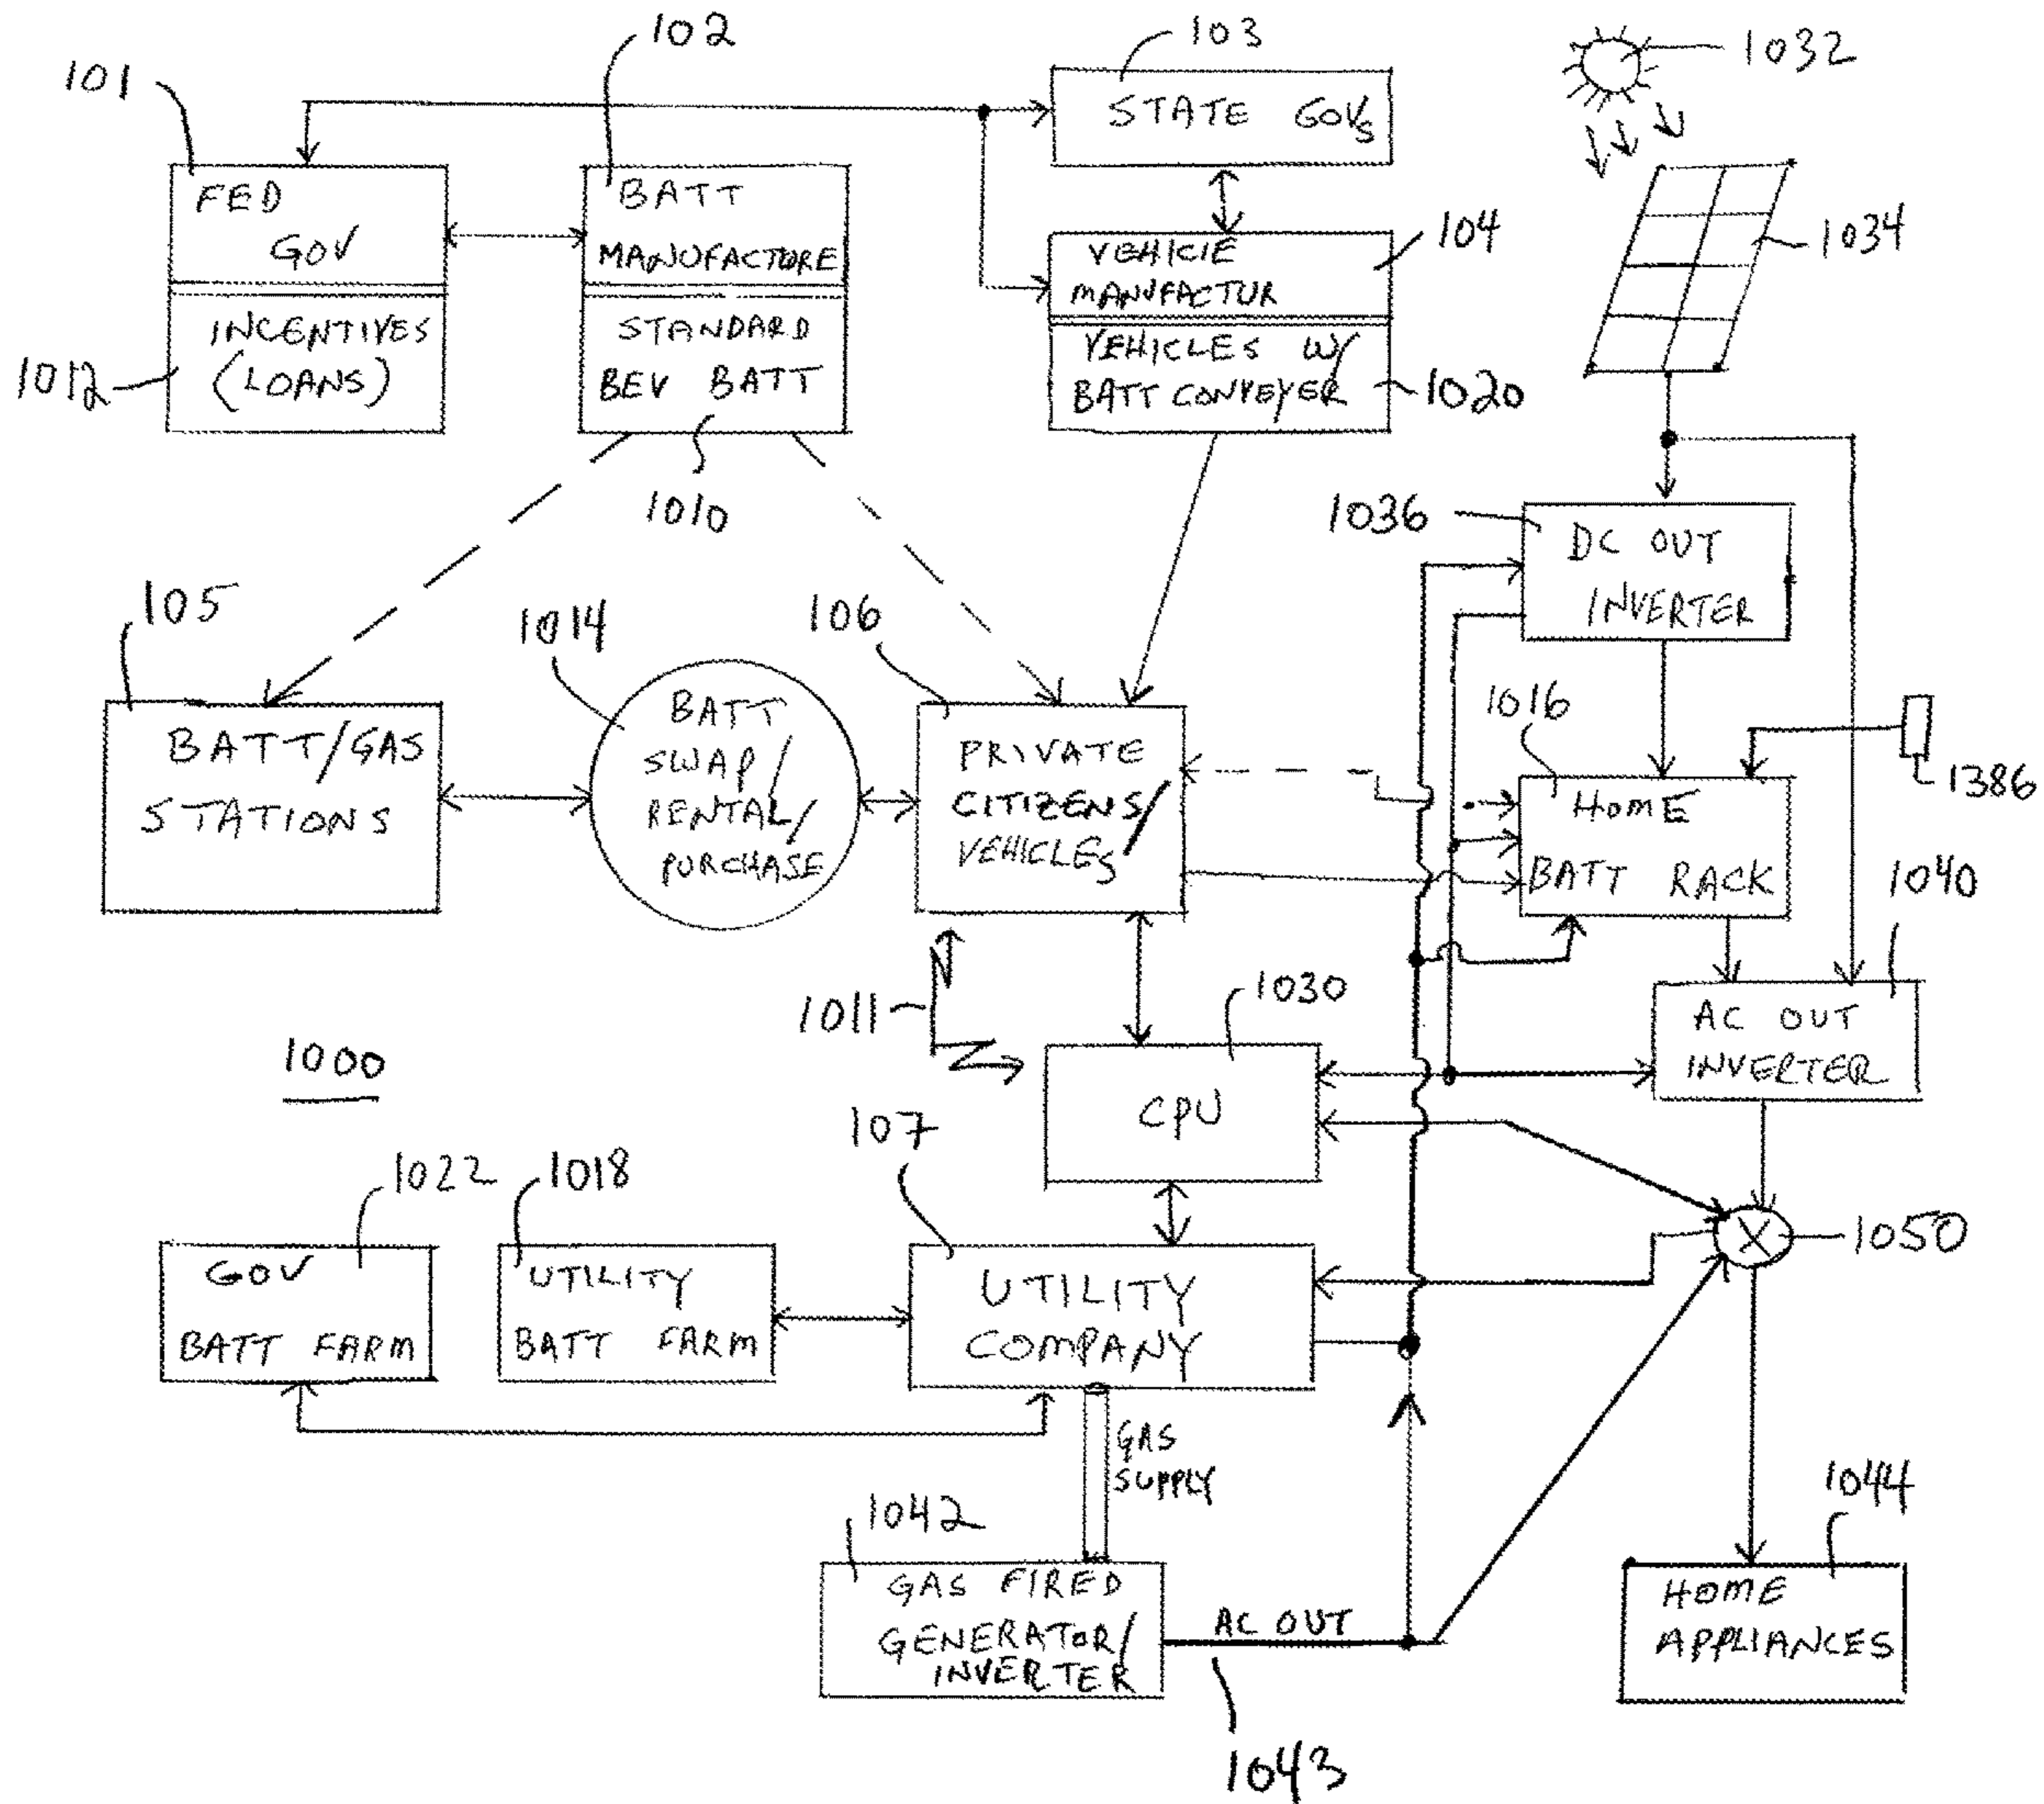 102
103
1032
101
STATE GOVS
FED
GOV
BATT
MANUFACTURE
104
1034
VEHICLE
MANUFACTUR
INCENTIVES
(LOANS)
1012
STANDARD
BEV BATT
VEHICLES W/
BATT CONVEYER
1020
1010
1036
DC OUT
INVERTER
105
1014
106
1016
BATT/GAS
STATIONS
BATT
SWAP/
RENTAL/
PURCHASE
PRIVATE
CITIZENS/
VEHICLES
1386
HOME
BATT RACK
1040
1011
1030
AC OUT
INVERTER
1000
CPU
107
1022
1018
1050
X
GOV
BATT FARM
UTILITY
BATT FARM
UTILITY
COMPANY
GAS
SUPPLY
1042
1044
GAS FIRED
GENERATOR/
INVERTER
AC OUT
HOME
APPLIANCES
1043